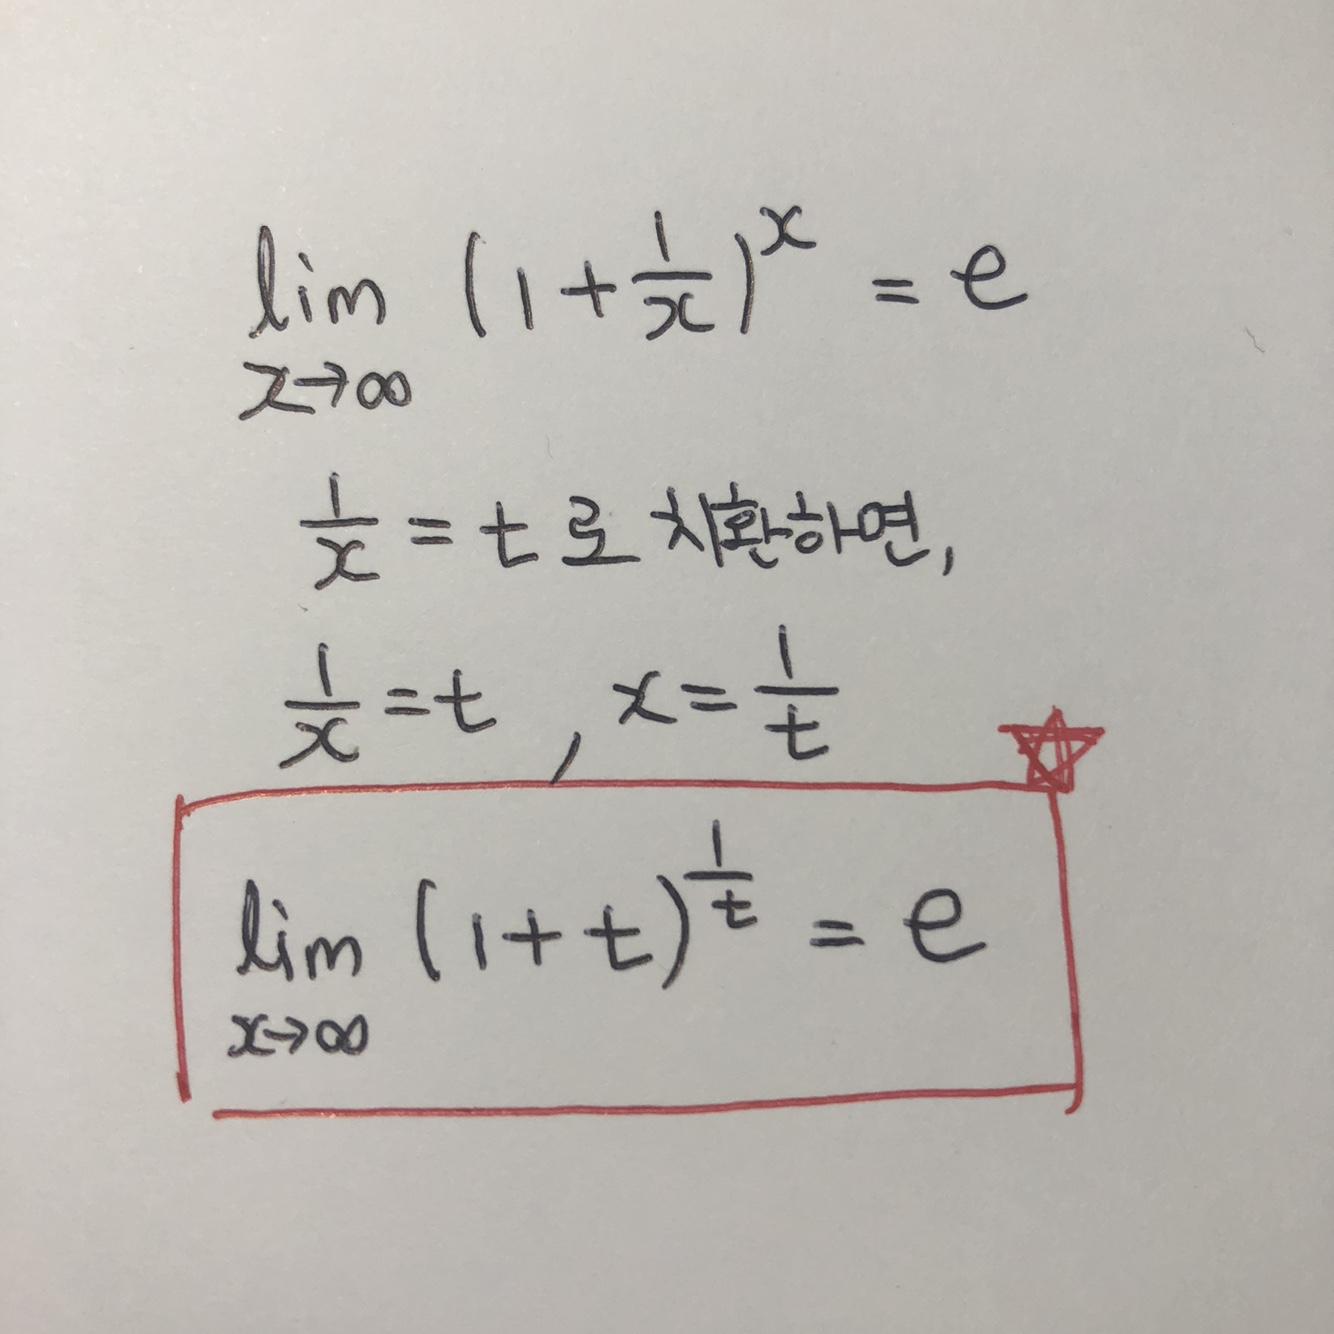 lim (1 + 1/x)^x = e
x→∞
1/x = t 로 치환하면,
1/x = t , x = 1/t
lim (1 + t)^(1/t) = e
x→∞